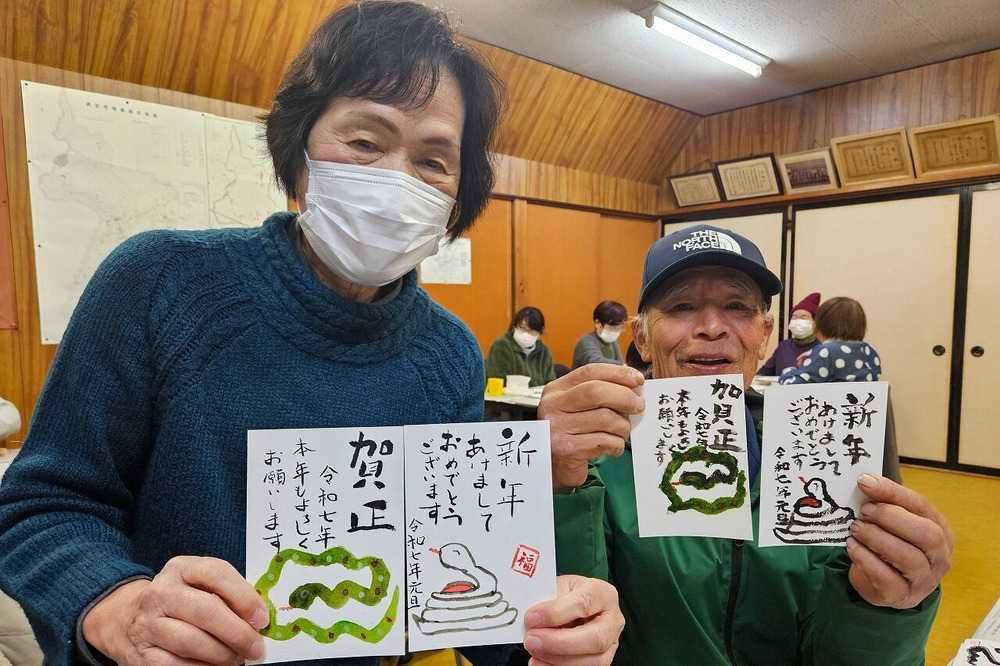 THE
NORTH
FACE
賀正
令和七年
本年もよろしく
お願いします
新年
あけまして
おめでとう
ございます
令和七年元旦
福
賀正
令和七年
本年もよろしく
お願いします
新年
あけまして
おめでとう
ございます
令和七年元旦